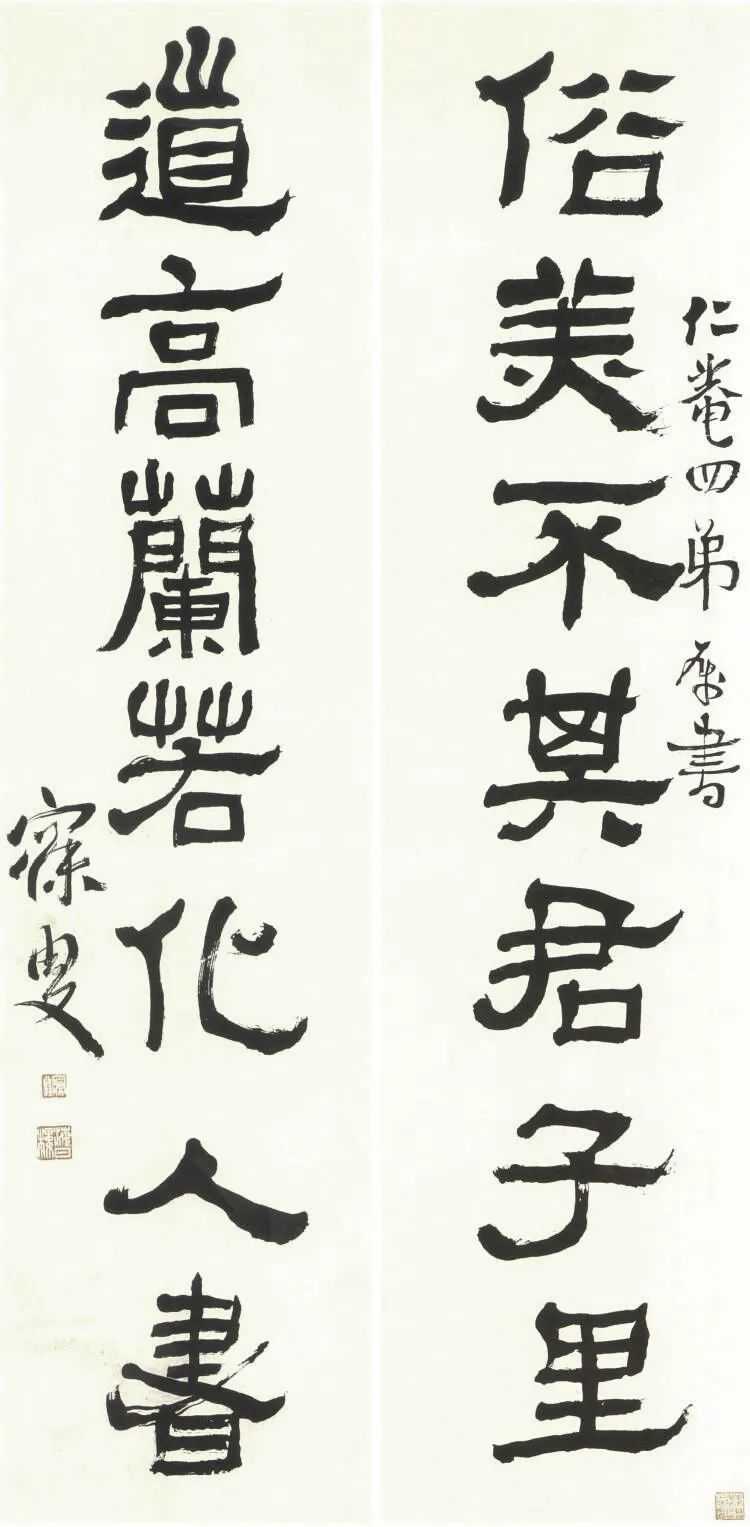 仁菴四弟屬書
俗美不其君子里
道高蘭若化人書
寐叟